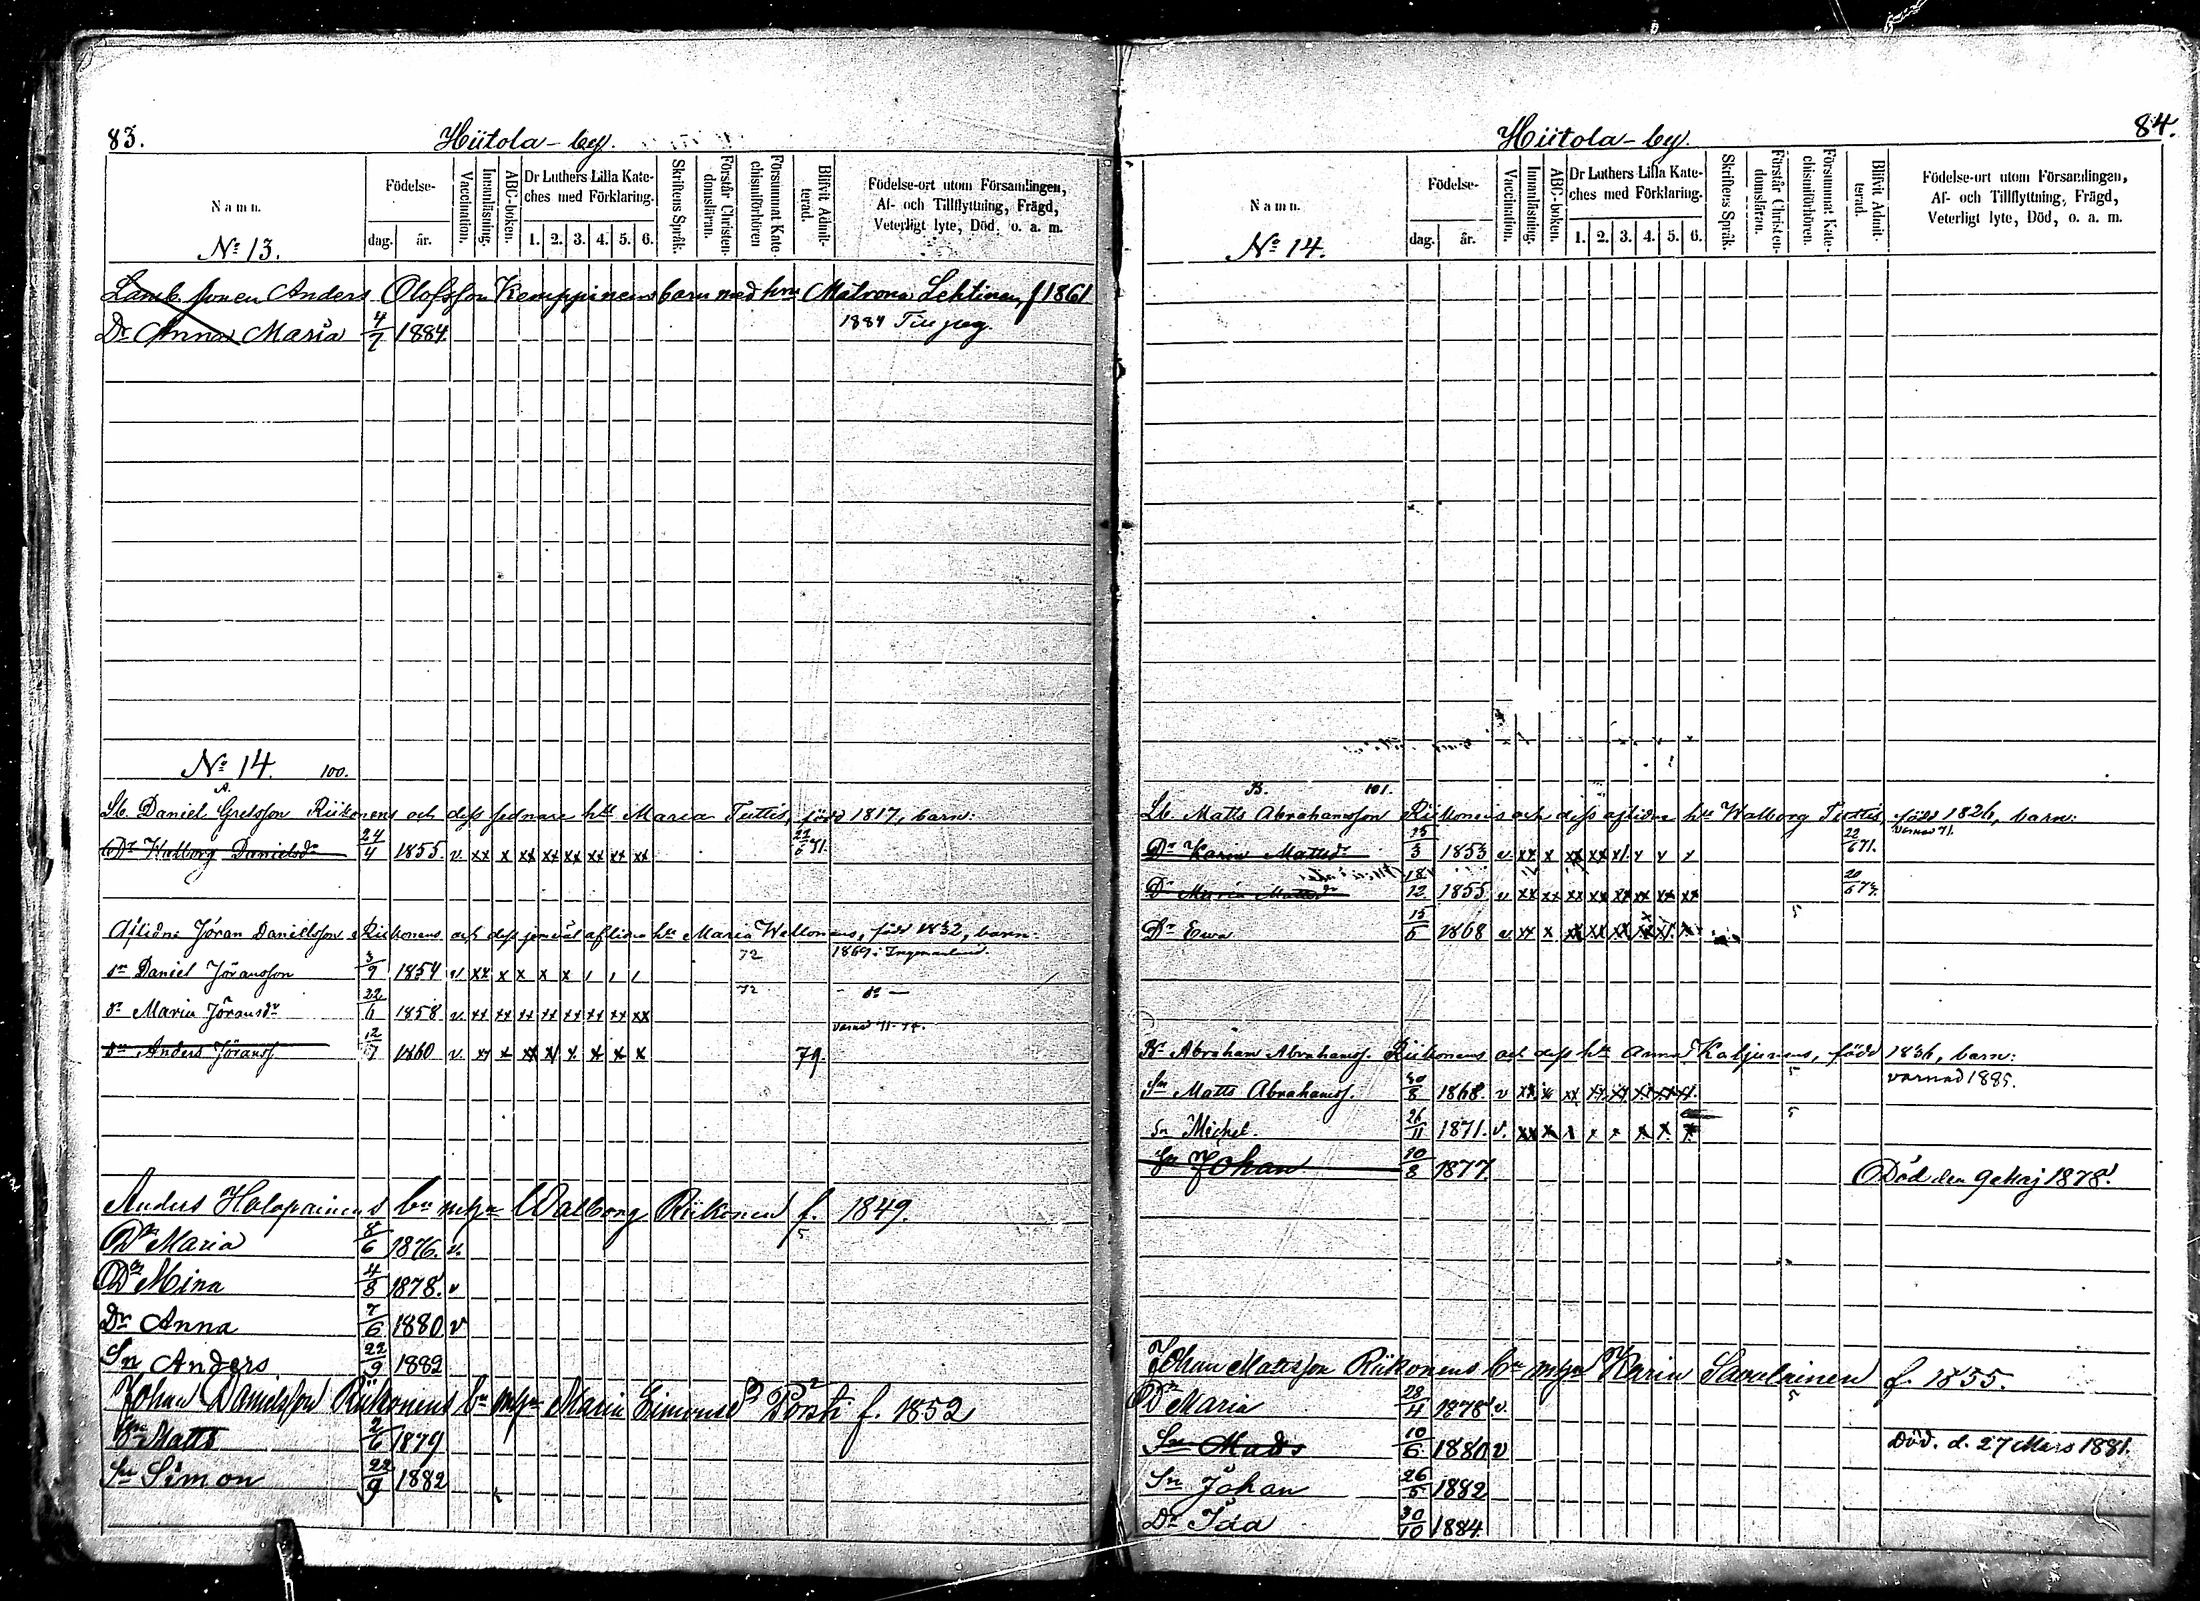 83.
Hiitola-by.
Namn.
Födelse-
dag.
år.
Vaccination.
Innanläsning.
ABC-boken.
Dr Luthers Lilla Kate-
ches med Förklaring.
1. 2. 3. 4. 5. 6.
Skriftens Språk.
Förstår Christen-
domsläran.
Försummat Kate-
chismiförhören
Blifvit Admit-
terad.
Födelse-ort utom Församlingen,
Af- och Tillflyttning, Frägd,
Veterligt lyte, Död, o. a. m.
No 13.
Anders Olofsson Kemppinens barn med hru Matrona Lehtinen f 1861
Dr Anna Maria 4/7 1884.
1884
No 14. 100.
A.
Lb. Daniel Gretsson Riikonens och dess sednare htt Maria Tuttis, född 1817, barn:
Dr Walborg Danielsdr 24/4 1855. v xx x xx xx xx xx xx xx
Aflidne Jöran Danielsson Riikonens och dess jemväl aflidna htt Maria Wellonens, född 1832, barn:
sn Daniel Jöransson 3/9 1854 v xx x x x x 72 1869 i Ingermanland.
dr Maria Jöransdr 22/6 1858 v xx xx xx xx xx xx xx xx 72 - do -
sn Anders Jöranss. 12/7 1860 v. 79.
Anders Halopainens bn m hru Walborg Riikonen f. 1849.
Dr Maria 8/6 1876. v.
Dr Mina 4/8 1878. v
Dr Anna 7/6 1880 v
Sn Anders 22/9 1882
Johan Danielsson Riikonens bn m hru Maria Simonsdr Pörsti f. 1852
Sn Matts 2/6 1879
Sn Simon 22/9 1882
84.
Hiitola-by.
Namn.
Födelse-
dag.
år.
Vaccination.
Innanläsning.
ABC-boken.
Dr Luthers Lilla Kate-
ches med Förklaring.
1. 2. 3. 4. 5. 6.
Skriftens Språk.
Förstår Christen-
domsläran.
Försummat Kate-
chismiförhören.
Blifvit Admit-
terad.
Födelse-ort utom Församlingen,
Af- och Tillflyttning, Frägd,
Veterligt lyte, Död, o. a. m.
No 14.
B. 101.
Lb. Matts Abrahamsson Riikonens och dess aflidna htt Walborg Tuttis, född 1826, barn:
Dr Karin Mattsdr 15/3 1853 v xx x 22/6 71. varnad 71.
Dr Maria Mattsdr 18/12 1855. v xx xx xx xx xx xx xx xx
Dr Ewa 15/5 1868 v xx x 5
Abraham Abrahamss. Riikonens och dess htt Anna Kaljunens, född 1836, barn:
Sn Matts Abrahamss. 30/8 1868. v 5 varnad 1885.
Sn Michel. 26/11 1871. v. 5
Sn Johan 10/8 1877. Död den 9 Maj 1878.
Johan Mattsson Riikonens bn m hru Karin Savolainen f. 1855.
Dr Maria 28/4 1878. v. 5
Sn Mads 10/6 1880 v Död. d. 27 Mars 1881.
Sn Johan 26/5 1882
Dr Ida 30/10 1884